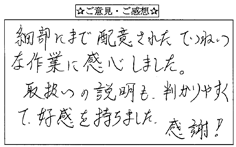 ☆ご意見・ご感想☆
細部にまで配意されたていねい
な作業に感心しました。
取扱いの説明も、判かりやすく
て、好感を持ちました。
感謝!